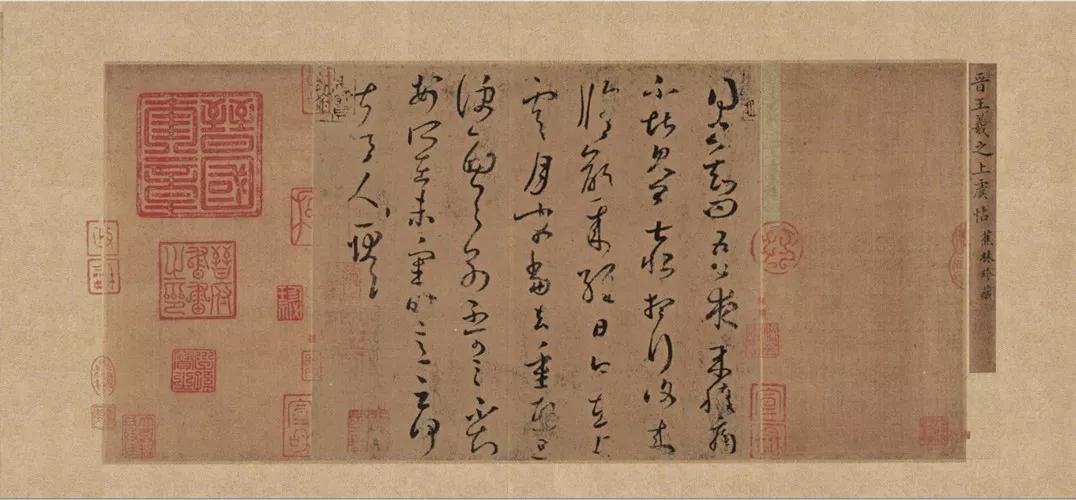 晉王羲之上虞帖 蕉林珍藏
得書知問吾夜來腹痛
不堪見卿甚恨想行復來
脩齡來經日今在上
虞月末當去重熙旦
便西與別不可言不知
安所在未審時意云何
甚令人耿耿
晉國奎章
晉府書畫之印